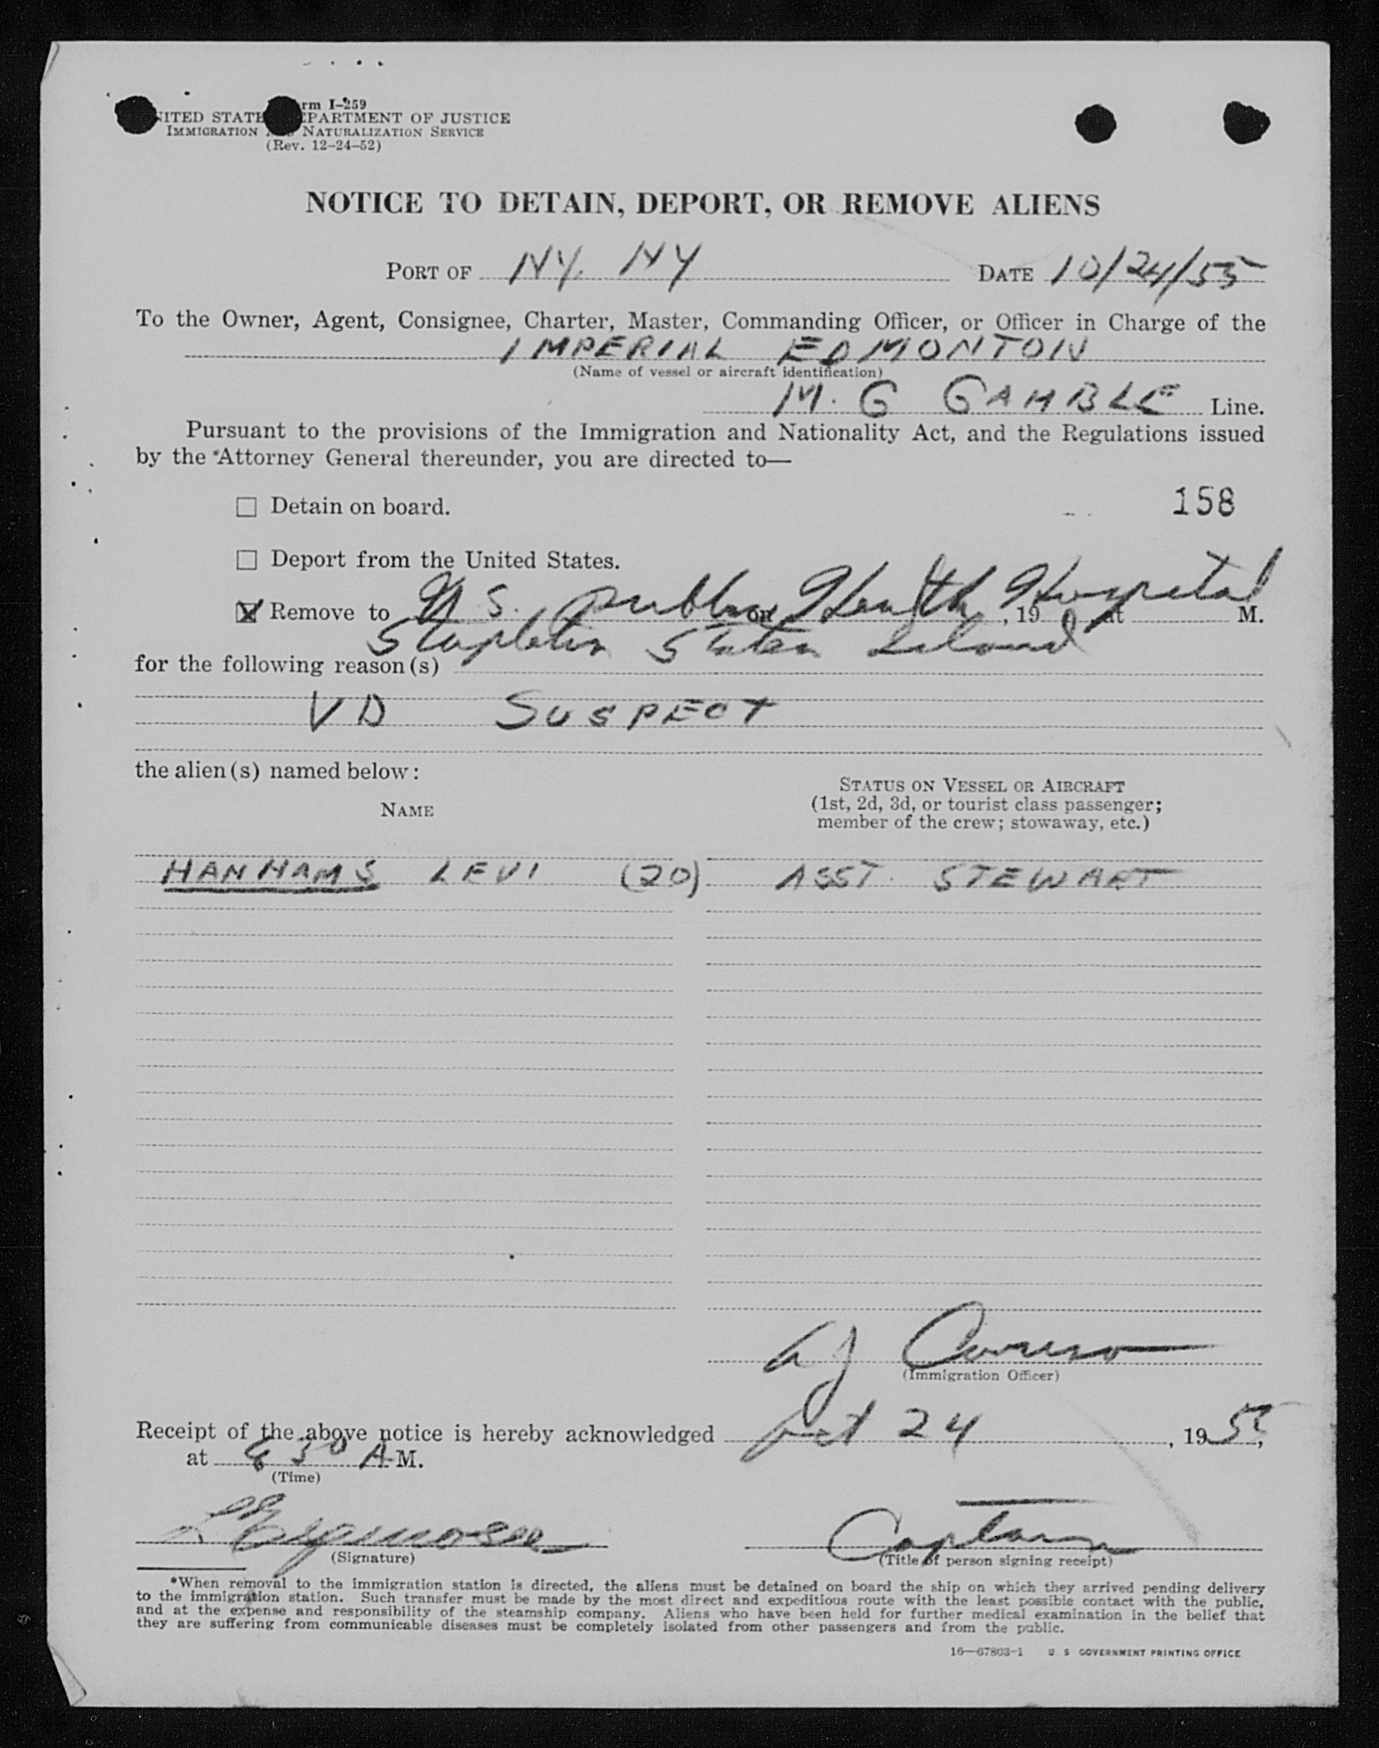 Form I-259
UNITED STATES DEPARTMENT OF JUSTICE
IMMIGRATION AND NATURALIZATION SERVICE
(Rev. 12-24-52)
NOTICE TO DETAIN, DEPORT, OR REMOVE ALIENS
PORT OF NY. NY DATE 10/24/55
To the Owner, Agent, Consignee, Charter, Master, Commanding Officer, or Officer in Charge of the
IMPERIAL EDMONTON
(Name of vessel or aircraft identification)
M. G GAMBLE Line.
Pursuant to the provisions of the Immigration and Nationality Act, and the Regulations issued
by the Attorney General thereunder, you are directed to—
Detain on board.
158
Deport from the United States.
Remove to U.S. Public on Health, 19 Hospital at M.
Stapleton Staten Island
for the following reason(s)
VD SUSPECT
the alien(s) named below:
NAME
STATUS ON VESSEL OR AIRCRAFT
(1st, 2d, 3d, or tourist class passenger;
member of the crew; stowaway, etc.)
HANHAMS LEVI (20) ASST. STEWART
Caruso
(Immigration Officer)
Receipt of the above notice is hereby acknowledged Oct 24, 1955,
at 8 30 A.M.
(Time)
Captain
(Signature)
(Title of person signing receipt)
*When removal to the immigration station is directed, the aliens must be detained on board the ship on which they arrived pending delivery
to the immigration station. Such transfer must be made by the most direct and expeditious route with the least possible contact with the public,
and at the expense and responsibility of the steamship company. Aliens who have been held for further medical examination in the belief that
they are suffering from communicable diseases must be completely isolated from other passengers and from the public.
16—67803-1 U. S. GOVERNMENT PRINTING OFFICE